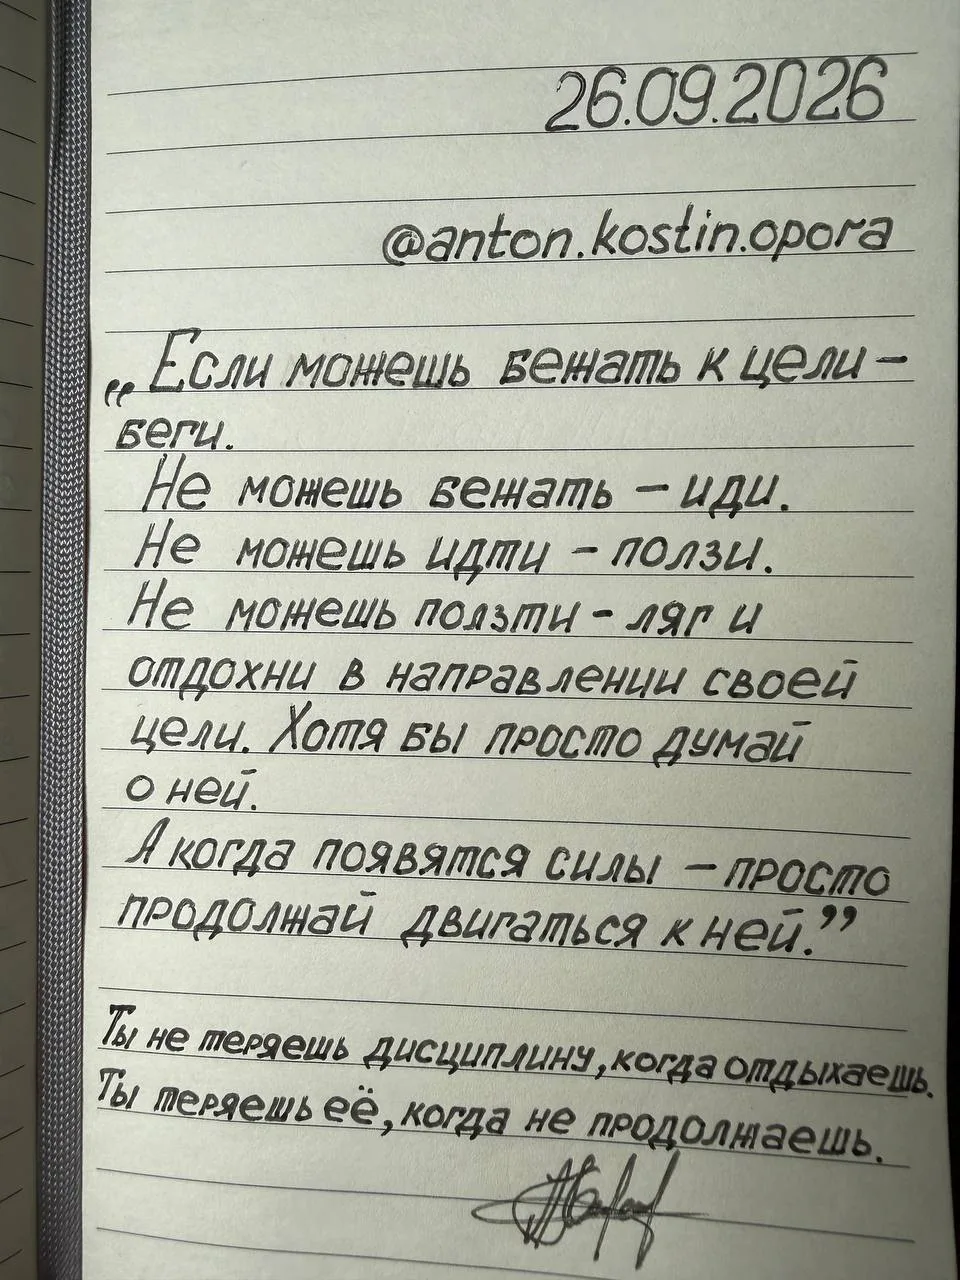 26.09.2026
@anton.kostin.opora
„Если можешь бежать к цели –
беги.
Не можешь бежать – иди.
Не можешь идти – ползи.
Не можешь ползти – ляг и
отдохни в направлении своей
цели. Хотя бы просто думай
о ней.
А когда появятся силы – просто
продолжай двигаться к ней.”
Ты не теряешь дисциплину, когда отдыхаешь.
Ты теряешь её, когда не продолжаешь.